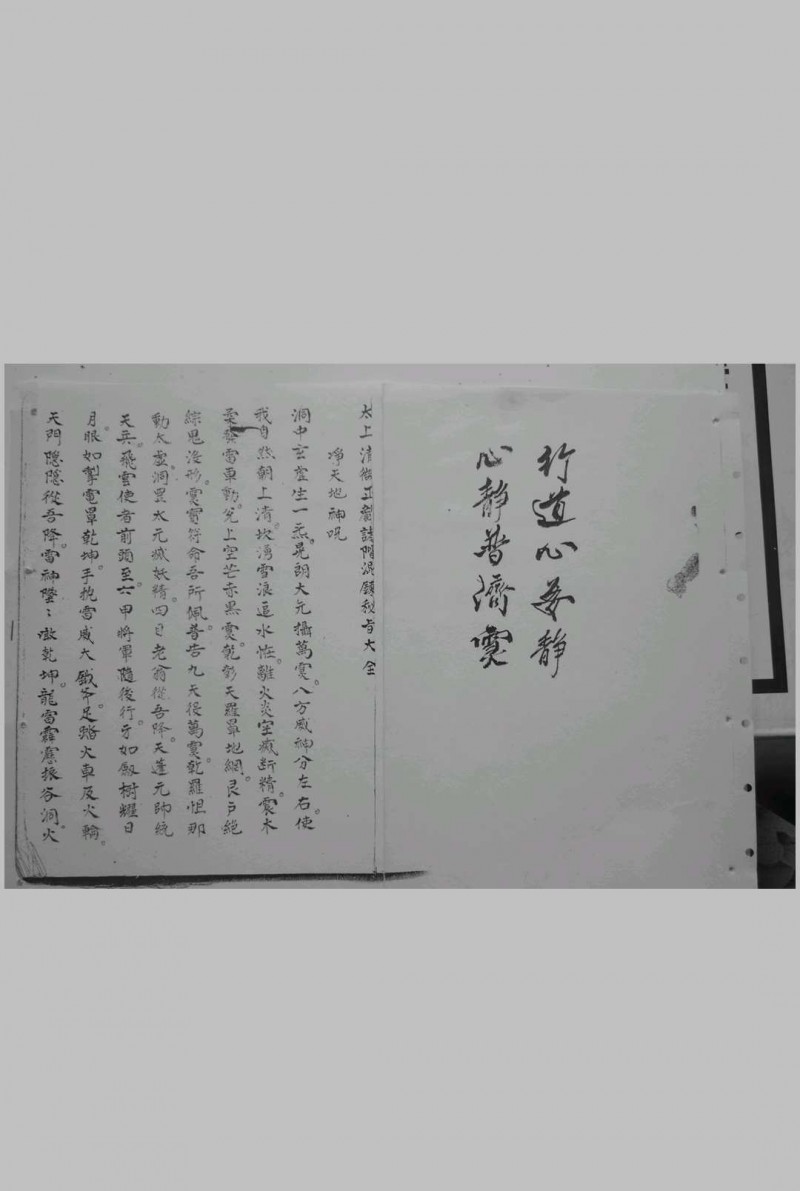 行道心安静
心静普濟靈
太上清微正
秘旨大全
淨天地神咒
洞中玄虛生一炁。晃朗大元攝萬靈。八方威神分左右。使
我自然朝上清。坎湧雪浪逼水怪。離火炎空滅斷精。震木
雷車動。兌上空芒赤黑靈。乾彰天羅罩地網。艮户絕
綜鬼沒形。靈寳符命吾所佩。普告九天役萬靈。乾羅怛那
動太虛。洞罡太元滅妖精。四目老翁從吾降。天蓬元帥統
天兵。飛雲使者前頭至。六甲將軍隨後行。牙如劔樹耀日
月。眼如掣電罩乾坤。手抱雷威大鉞斧。足踏火車及火輪。
天門隱隱從吾降。雷神 乾坤。龍雷霹靂振各洞。火